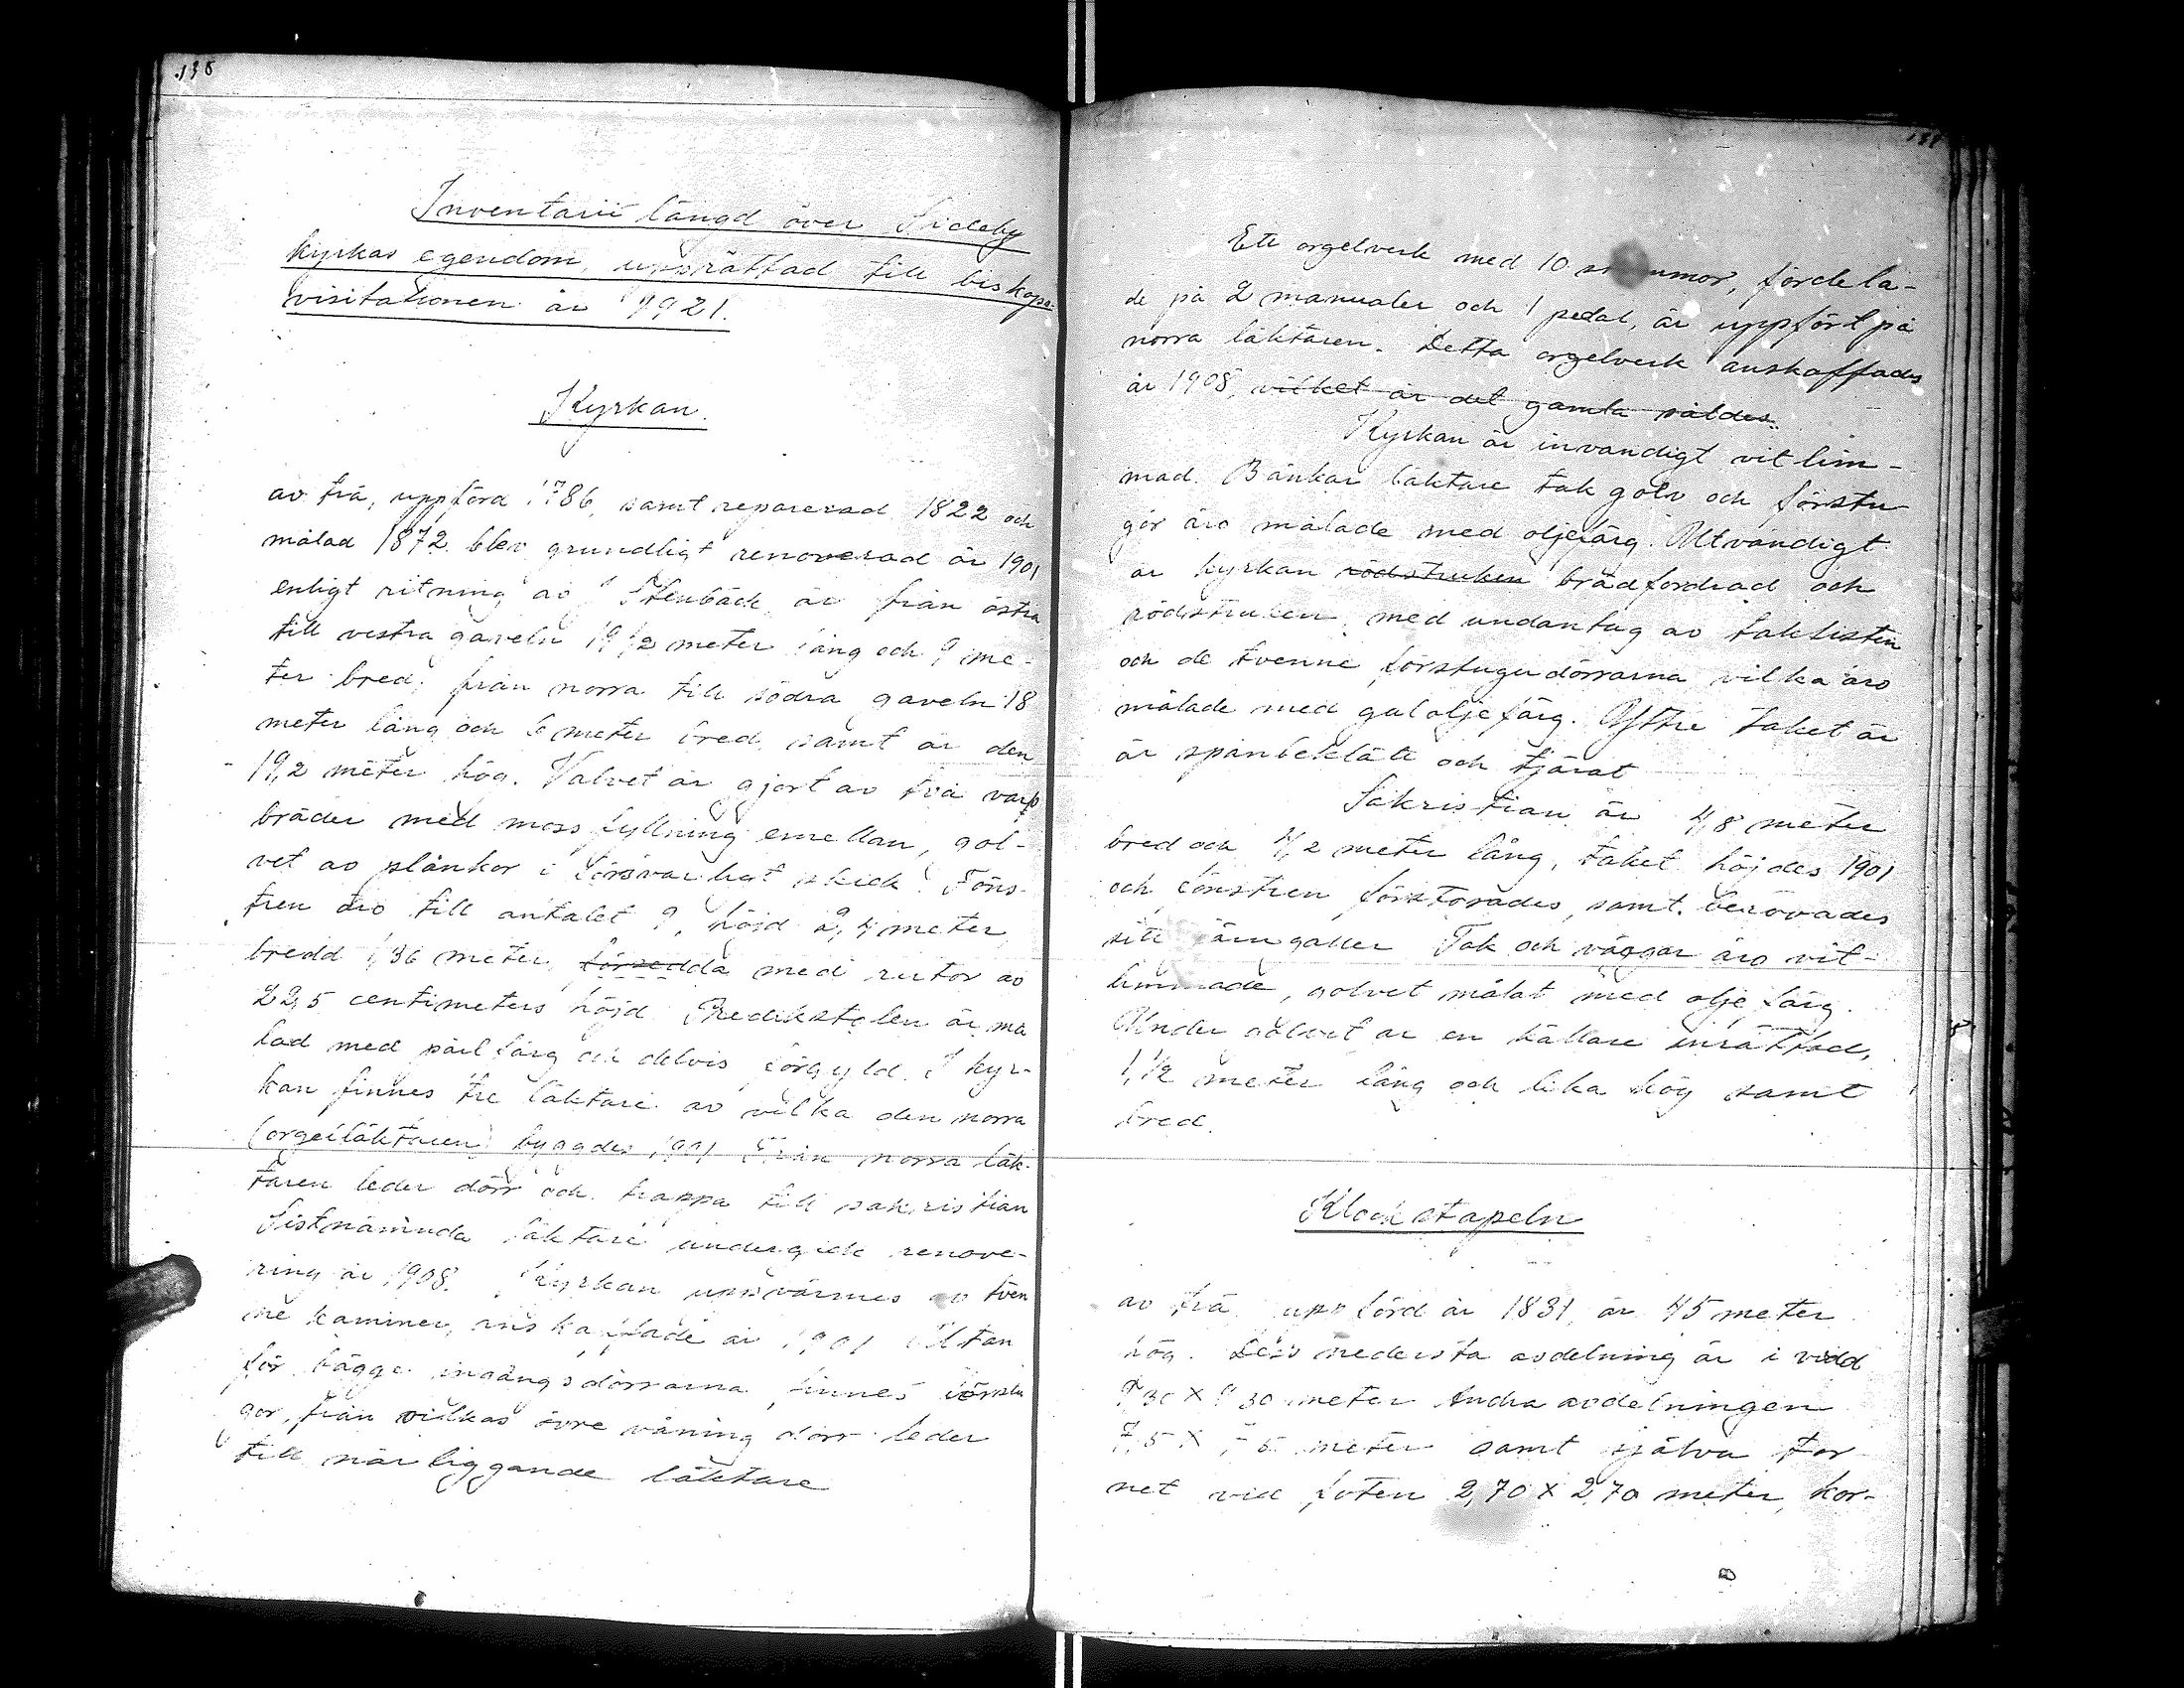 138
Inventarii längd över Sideby
kyrkas egendom, upprättad till biskops-
visitationen år 1921.
Kyrkan.
av trä, uppförd 1786, samt reparerad 1822 och
målad 1872 blev grundligt renoverad år 1901
enligt ritning av Stenbäck är från östra
till vestra gaveln 19 1/2 meter lång och 9 me-
ter bred; från norra till södra gaveln 18
meter lång och 6 meter bred samt är den
19,2 meter hög. Valvet är gjort av två varp
bräder med mossfyllning emellan, gol-
vet av plankor i försvarligt skick. Föns-
tren äro till antalet 9, höjd 2,4 meter
bredd 1,36 meter, försedda med rutor av
22,5 centimeters höjd. Predikstolen är må
lad med pärlfärg och delvis förgyld. I kyr-
kan finnes tre läktare av vilka den norra
(orgelläktaren) byggdes 1901 Från norra läk-
taren leder dörr och trappa till sakristian
Sistnämnda läktare undergick renove-
ring år 1908. Kyrkan uppvärmes av tven
ne kaminer, anskaffade år 1901 Utan
för bägge ingångsdörrarna finnes förstu
gor, från vilkas övre våning dörr leder
till närliggande läktare
Ett orgelverk med 10 stämmor, fördela-
de på 2 manualer och 1 pedal, är uppfört på
norra läktaren. Detta orgelverk anskaffades
år 1908, vilket år det gamla såldes.
Kyrkan är invändigt vitlim-
mad. Bänkar läktare tak golv och förstu-
gor äro målade med oljefärg. Utvändigt
är kyrkan rödstruken brädfordrad och
rödstruken, med undantag av taklisten
och de tvenne förstugudörrarna vilka äro
målade med gul oljefärg. Yttre taket är
är spånbeklätt och tjärat
Sakristian är 4,8 meter
bred och 4,2 meter lång, taket höjdes 1901
och fönstren förstorades, samt berövades
sitt järngaller Tak och väggar äro vit-
limmade, golvet målat med oljefärg.
Under golvet är en källare inrättad,
1 1/2 meter lång och lika hög samt
bred.
Klockstapeln
av trä uppförd år 1831, är 45 meter
hög. Dess nedersta avdelning är i vidd
meter Andra avdelningen
meter samt själva tor
net vid foten 2,70 x 2,70 meter, kor-